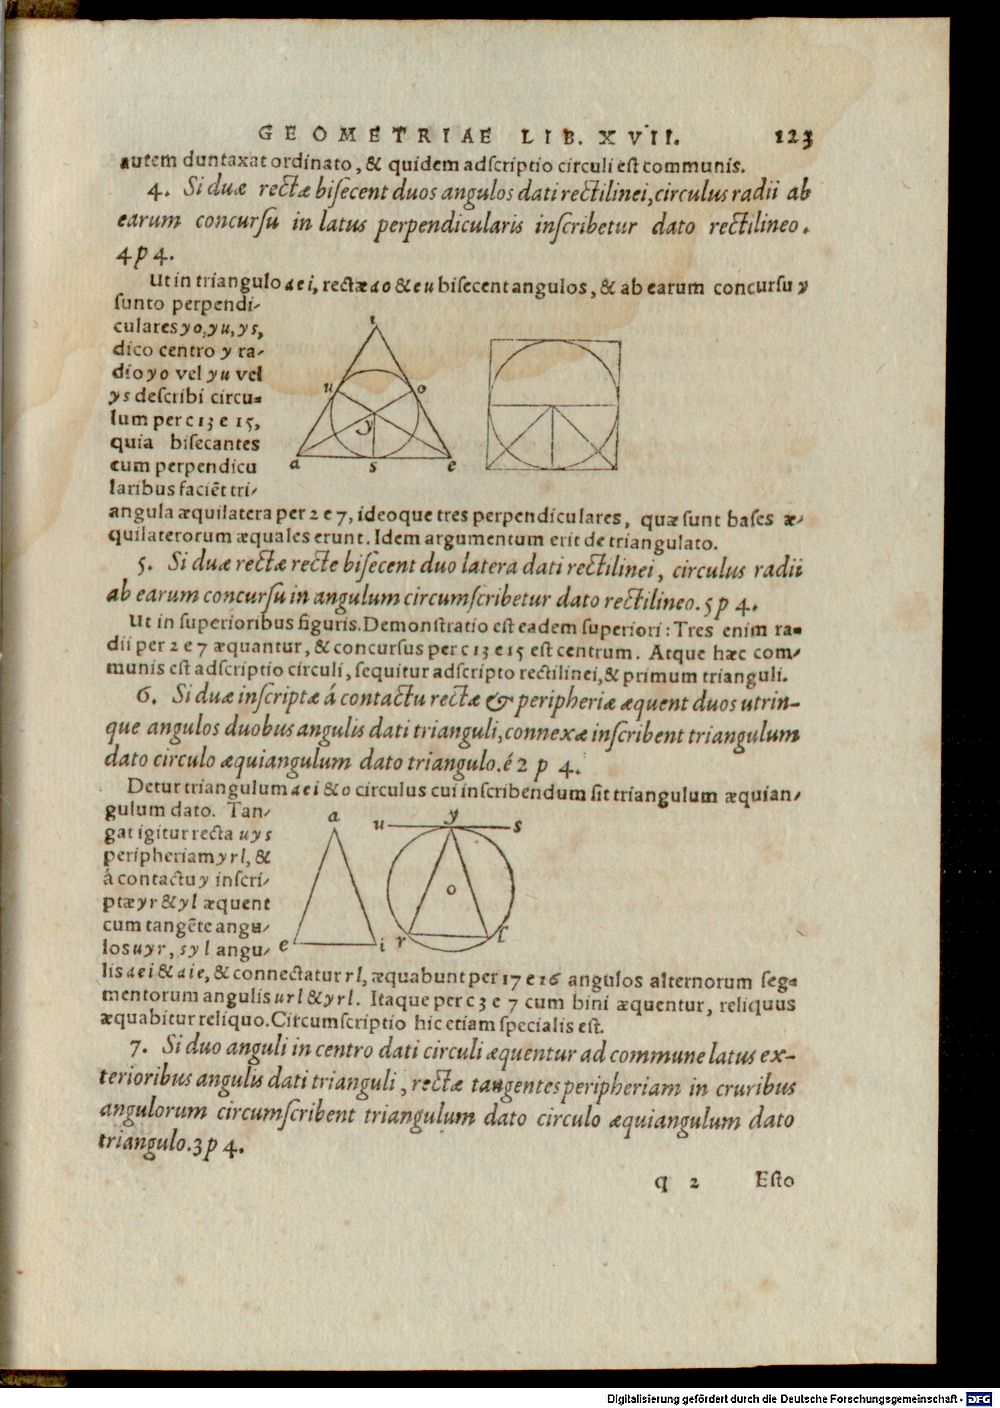 GEOMETRIAE LIB. XVII. 123
autem duntaxat ordinato, & quidem adſcriptio circuli eſt communis.
4. Si duæ rectæ biſecent duos angulos dati rectilinei, circulus radii ab
earum concurſu in latus perpendicularis inſcribetur dato rectilineo.
4 p 4.
Ut in triangulo aei, rectæ ao & eu biſecent angulos, & ab earum concurſu y
ſunto perpendi-
culares yo, yu, ys,
dico centro y ra-
dio yo vel yu vel
ys deſcribi circu-
lum per c 13 e 15,
quia biſecantes
cum perpendicu
laribus faciẽt tri-
angula æquilatera per 2 e 7, ideoque tres perpendiculares, quæ ſunt baſes æ-
quilaterorum æquales erunt. Idem argumentum erit de triangulato.
i
u o
y
a s e
5. Si duæ rectæ recte biſecent duo latera dati rectilinei, circulus radii
ab earum concurſu in angulum circumſcribetur dato rectilineo. 5 p 4.
Ut in ſuperioribus figuris. Demonſtratio eſt eadem ſuperiori: Tres enim ra-
dii per 2 e 7 æquantur, & concurſus per c 13 e 15 eſt centrum. Atque hæc com-
munis eſt adſcriptio circuli, ſequitur adſcripto rectilinei, & primum trianguli.
6. Si duæ inſcriptæ á contactu rectæ & peripheriæ æquent duos utrin-
que angulos duobus angulis dati trianguli, connexæ inſcribent triangulum
dato circulo æquiangulum dato triangulo. é 2 p 4.
Detur triangulum aei & o circulus cui inſcribendum ſit triangulum æquian-
gulum dato. Tan-
gat igitur recta uys
peripheriam yrl, &
á contactu y inſcri-
ptæ yr & yl æquent
cum tangẽte angu-
los uyr, syl angu-
lis aei & aie, & connectatur rl, æquabunt per 17 e 16 angulos alternorum ſeg-
mentorum angulis url & yrl. Itaque per c 3 e 7 cum bini æquentur, reliquus
æquabitur reliquo. Circumſcriptio hic etiam ſpecialis eſt.
a u y s
o
e i r l
7. Si duo anguli in centro dati circuli æquentur ad commune latus ex-
terioribus angulis dati trianguli, rectæ tangentes peripheriam in cruribus
angulorum circumſcribent triangulum dato circulo æquiangulum dato
triangulo. 3 p 4.
q 2 Eſto
Digitalisierung gefördert durch die Deutsche Forschungsgemeinschaft - DFG